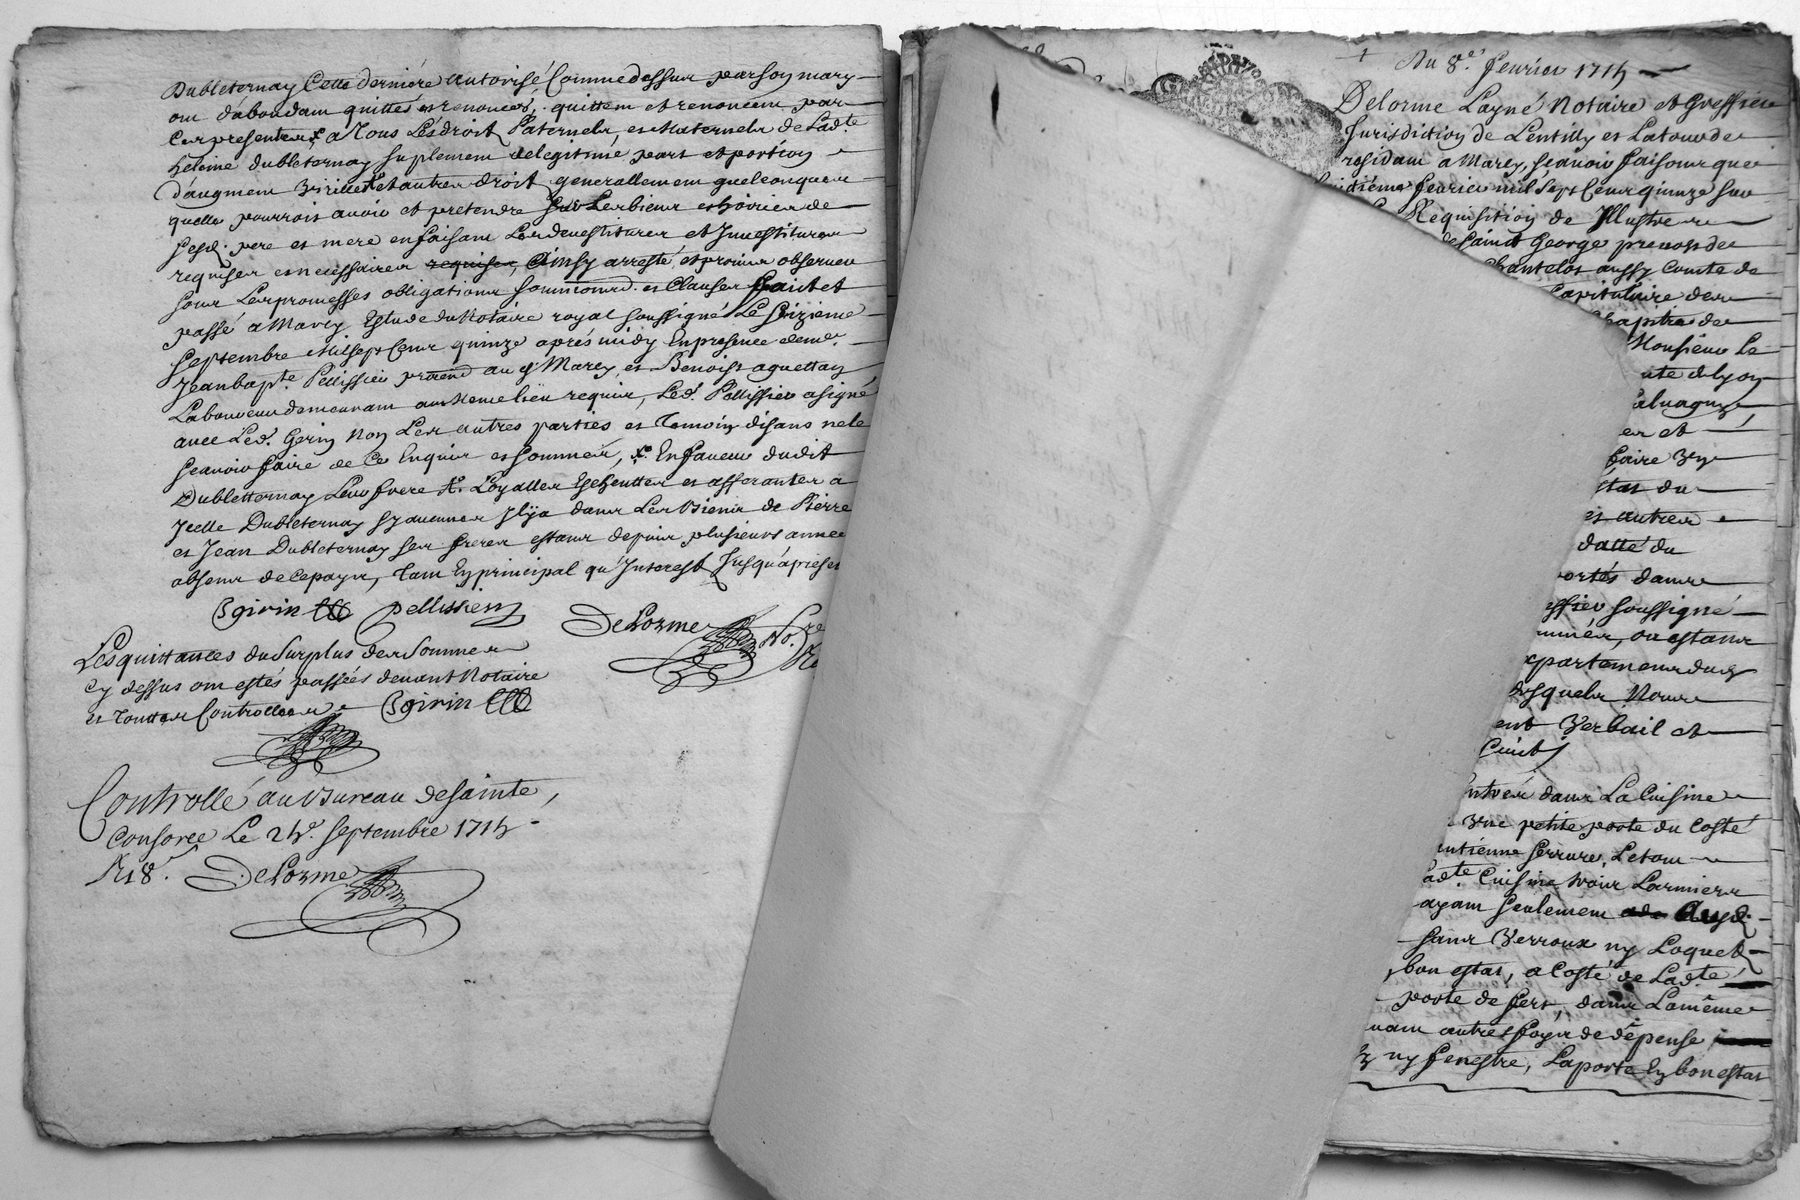 Dubleternay Cette derniére autorisé Comme dessus par son mary
ont d'abondam quittés et renoncés, quittem et renoncem par
Ces presentes a Tous Les droits Paternels et Maternels de Lad.te
heleine dubleternay suplement de legitime, part et portion
d'augment virilles et autres droits generallement quelconques
quelle pourroit avoir et pretendre sur Les biens et hoiries de
sesd. pere et mere en faisant Les devestitures et Investitures
requises et necessaires requises, Ainsy arresté et promis observer
sous Les promesses obligations soumissions et Clauses fait et
passé a Marcy Estude du Notaire royal soussigné Le seizieme
septembre Mil sept Cent quinze aprés midy En presence de m.e
Jean bapt.e Pellissier praticien au d. Marcy, et Benoist aguettan
Laboureur demeurant au meme lieu requis, Led. Pellissier a signé
avec Led. Gerin Non Les autres parties et Temoin disans ne le
scavoir faire de Ce Enquis et sommés, En faveur dudit
Dublettornay Leur frere Loyalles Escheuttes et afferantes a
Icelle Dubleternay sy aucunes Il y a dans Les Biens de Pierre
et Jean Dubleternay ses freres estans depuis plusieurs année
absens de ce pays, Tant En principal qu'Interest Jusqu'apréset
Bgirin pellissier
DeLorme No.re
Les quittances du Surplus des Sommes
Cy dessus ont estés passées devant Notaire
et Touttes Controllees Bgirin
Controllé au Bureau de Sainte
Consorce Le 24.e septembre 1715
R 18.s DeLorme
+ Du 8.e fevrier 1715
Delorme L'ayné Notaire et Greffier
Jurisdiction de Lentilly et Latour de
residant a Marcy, scavoir faisons que
huitiéme fevrier mil sept Cent quinze sur
Requisition de Illustre
de Saint George prevost de
Chantelot aussy Comte de
Capitulaire des
Chapitre de
Monsieur Le
mte de Lyon
alvagny
er et
faire vn
estat du
et autres
datté du
portés dans
effier soussigné
més, ou estans
partement du
desquels Nous
ent verbail et
suit
Entrés dans La Cuisine
vne petite porte du Costé
ntienne serrure, Letout
ad.te Cuisine trois Larmiers
ayant seulement Aux d.
sans verroux ny Loquet
bon estat, a Costé de Lad.te
porte de fert, dans La même
nant autres foys de dépense
ny fenestre, La porte En bon estat